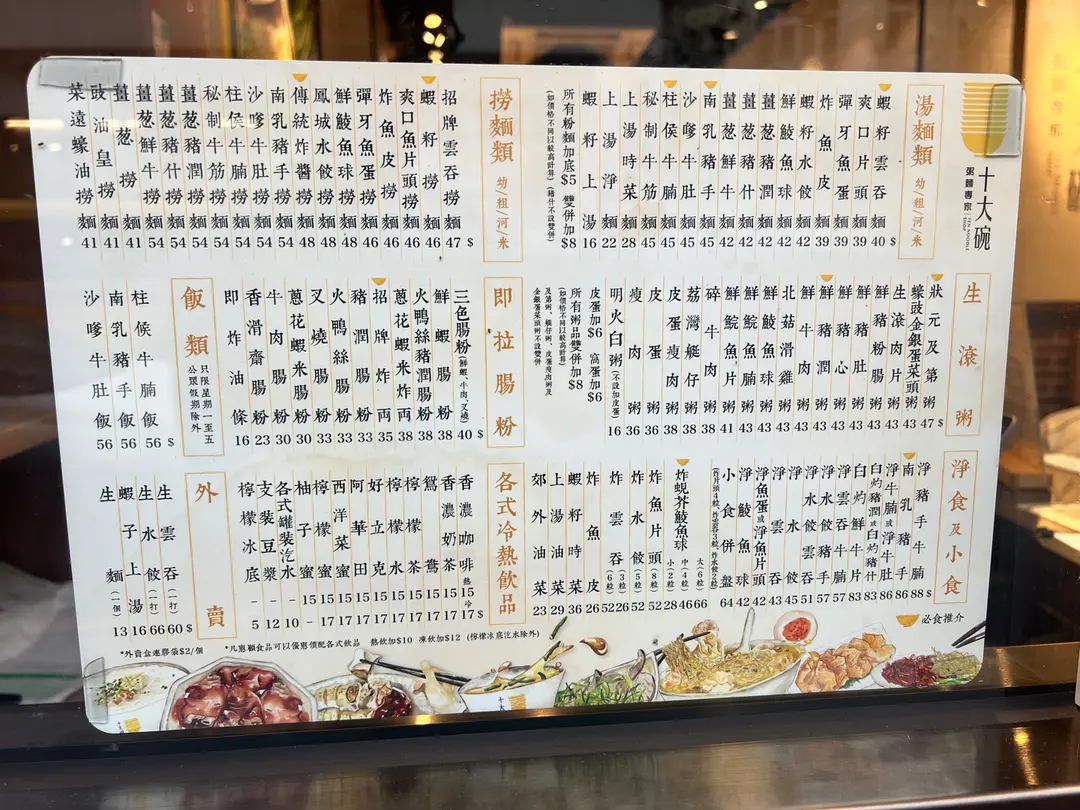 十大碗
粥麵專家
TEN NOODLE SHOP
湯麵類 幼/粗/河/米
蝦籽雲吞麵 40 $
爽口片頭麵 39
彈牙魚蛋麵 39
炸魚皮麵 39
蝦籽水餃麵 42
鮮鯪魚球麵 42
薑葱豬潤麵 42
薑葱豬什麵 42
薑葱鮮牛麵 42
南乳豬手麵 45
沙嗲牛肚麵 45
柱侯牛腩麵 45
秘制牛筋麵 45
上湯時菜麵 28
上湯淨麵 22
蝦籽上湯 16
所有粉麵加底$5 雙併加$8
(如價格不同以較高計算) (豬什不設雙併)
撈麵類 幼/粗/河/米
招牌雲吞撈麵 47 $
蝦籽撈麵 46
爽口魚片頭撈麵 46
炸魚皮撈麵 46
彈牙魚蛋撈麵 46
鮮鯪魚球撈麵 48
鳳城水餃撈麵 48
傳統炸醬撈麵 48
南乳豬手撈麵 54
沙嗲牛肚撈麵 54
柱侯牛腩撈麵 54
秘制牛筋撈麵 54
薑葱豬潤撈麵 54
薑葱豬什撈麵 54
薑葱鮮牛撈麵 54
薑葱撈麵 41
豉油皇撈麵 41
菜遠蠔油撈麵 41
生滾粥
狀元及第粥 47 $
蠔豉金銀蛋菜頭粥 43
生滾肉片粥 43
鮮豬粉腸粥 43
鮮豬肚粥 43
鮮豬心粥 43
鮮豬潤粥 43
鮮牛肉粥 43
北菇滑雞粥 43
鮮鯪魚球粥 43
鮮鯇魚腩粥 43
鮮鯇魚片粥 41
碎牛肉粥 38
荔灣艇仔粥 38
皮蛋瘦肉粥 38
皮蛋粥 36
瘦肉粥 36
明火白粥(不設加皮蛋) 16
皮蛋加$6 窩蛋加$6
所有粥品雙併加$8
(如價格不同以較高計算)
及第粥、艇仔粥、皮蛋瘦肉粥及
金銀蛋菜頭粥不設雙併
即拉腸粉
三色腸粉(鮮蝦、牛肉、叉燒) 40 $
鮮蝦腸粉 38
火鴨絲豬潤腸粉 38
蔥花蝦米炸両 38
招牌炸両 35
豬潤腸粉 33
火鴨絲腸粉 33
叉燒腸粉 33
蔥花蝦米腸粉 30
牛肉腸粉 30
香滑齋腸粉 23
即炸油條 16
飯類 只限星期一至五
公眾假期除外
柱侯牛腩飯 56 $
南乳豬手飯 56
沙嗲牛肚飯 56
淨食及小食
淨豬手牛腩 88 $
南乳豬手 86
淨牛腩或淨牛肚 86
白灼豬潤或白灼豬什 83
白灼鮮牛片 83
淨雲吞鮮牛腩 57
淨水餃豬手 57
淨水餃雲吞 51
淨水餃 45
淨雲吞 43
淨魚蛋或淨魚片頭 42
淨鯪魚球 42
小食併盤 64
(炸片頭4粒、炸雲吞3粒、炸水餃2粒)
炸蜆芥鯪魚球 大(6粒) 66 中(4粒) 46 小(2粒) 28
炸魚片頭(8粒) 52
炸水餃(5粒) 52
炸雲吞(3粒) 26 (6粒) 52
炸魚皮 26
蝦籽時菜 36
上湯油菜 29
郊外油菜 23
各式冷熱飲品
香濃咖啡 熱15 冷17 $
香濃奶茶 15 17
鴛鴦 15 17
檸茶 15 17
檸水 15 17
好立克 15 17
阿華田 15 17
西洋菜蜜 15 17
檸蜜 15 17
柚子蜜 15 –
各式罐裝汽水 – 10
支裝豆漿 – 12
檸檬冰底 – 5
外賣
生雲吞(一打) 60 $
生水餃(一打) 66
蝦子上湯 16
生麵(一個) 13
必食推介
*外賣盒連膠袋$2/個
*凡惠顧食品可以優惠價配各式飲品 熱飲加$10 凍飲加$12 (檸檬冰底汽水除外)